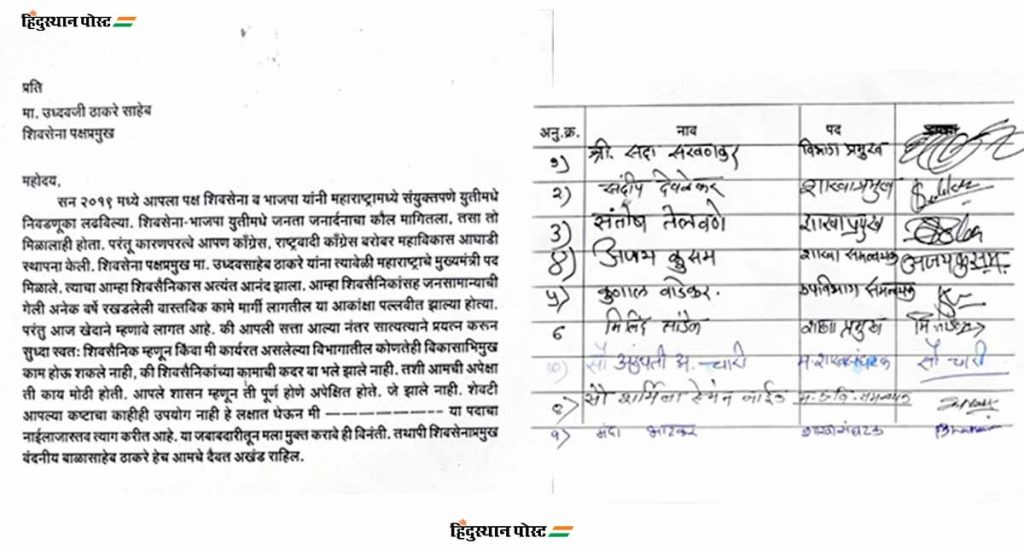 हिंदुस्थान पोस्ट
प्रति
मा. उध्दवजी ठाकरे साहेब
शिवसेना पक्षप्रमुख
महोदय,
सन २०१९ मध्ये आपला पक्ष शिवसेना व भाजपा यांनी महाराष्ट्रामध्ये संयुक्तपणे युतीमधे
निवडणूका लढविल्या. शिवसेना-भाजपा युतीमधे जनता जनार्दनाचा कौल मागितला, तसा तो
मिळालाही होता. परंतू कारणपरत्वे आपण काँग्रेस, राष्ट्रवादी काँग्रेस बरोबर महाविकास आघाडी
स्थापना केली. शिवसेना पक्षप्रमुख मा. उध्दवसाहेब ठाकरे यांना त्यावेळी महाराष्ट्राचे मुख्यमंत्री पद
मिळाले. त्याचा आम्हा शिवसैनिकास अत्यंत आनंद झाला. आम्हा शिवसैनिकांसह जनसामान्याची
गेली अनेक वर्षे रखडलेली वास्तविक कामे मार्गी लागतील या आकांक्षा पल्लवीत झाल्या होत्या.
परंतु आज खेदाने म्हणावे लागत आहे. की आपली सत्ता आल्या नंतर सात्यत्याने प्रयत्न करुन
सुध्दा स्वतः शिवसैनिक म्हणून किंवा मी कार्यरत असलेल्या विभागातील कोणतेही विकासाभिमुख
काम होऊ शकले नाही, की शिवसैनिकांच्या कामाची कदर वा भले झाले नाही. तशी आमची अपेक्षा
ती काय मोठी होती. आपले शासन म्हणून ती पूर्ण होणे अपेक्षित होते. जे झाले नाही. शेवटी
आपल्या कष्टाचा काहीही उपयोग नाही हे लक्षात घेऊन मी —————— या पदाचा
नाईलाजास्तव त्याग करीत आहे. या जबाबदारीतून मला मुक्त करावे ही विनंती. तथापी शिवसेनाप्रमुख
वंदनीय बाळासाहेब ठाकरे हेच आमचे दैवत अखंड राहिल.
अनु.क्र. नाव पद
१) श्री. सदा सरवणकर विभाग प्रमुख
२) संदीप देवळेकर शाखाप्रमुख
३) संतोष तेलवणे शाखाप्रमुख
४) अजय कुसम शाखा समन्वयक अजय कुसम
५) कुणाल वाडेकर. उपविभाग समन्वयक
६ मिलिंद तांडेल शाखा प्रमुख
७) सौ अरुंधती अ. चारी म. शाखासंघटक सौ चारी
८) सौ शर्मिला हेमंत नाईक म. उ. वि. समन्वयक
९) मंदा भाटकर शाखासंघटक
हिंदुस्थान पोस्ट